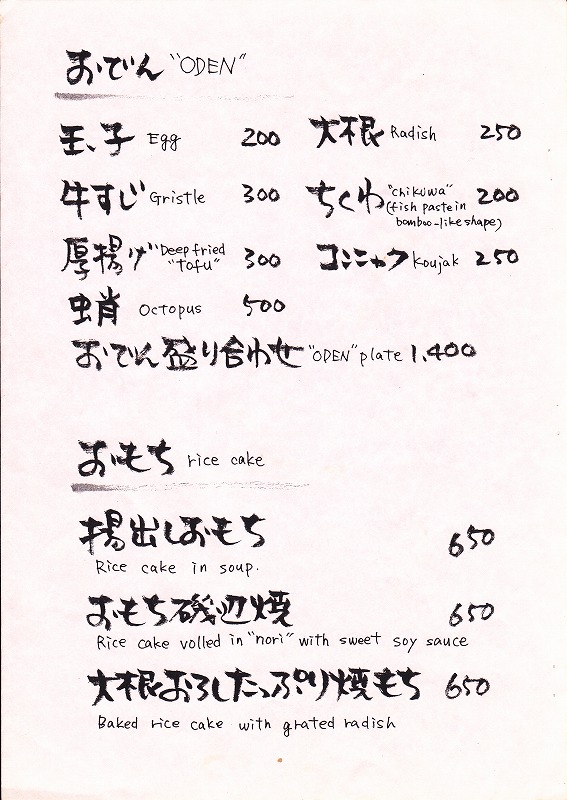 おでん "ODEN"
玉子 Egg 200
大根 Radish 250
牛すじ Gristle 300
ちくわ "chikuwa" 200
(fish paste in
bamboo-like shape)
厚揚げ Deep fried
"tofu" 300
コンニャク Koujak 250
蛸 Octopus 500
おでん盛り合わせ "ODEN" plate 1,400
おもち rice cake
揚出しおもち 650
Rice cake in soup.
おもち磯辺焼 650
Rice cake volled in "nori" with sweet soy sauce
大根おろしたっぷり焼もち 650
Baked rice cake with grated radish